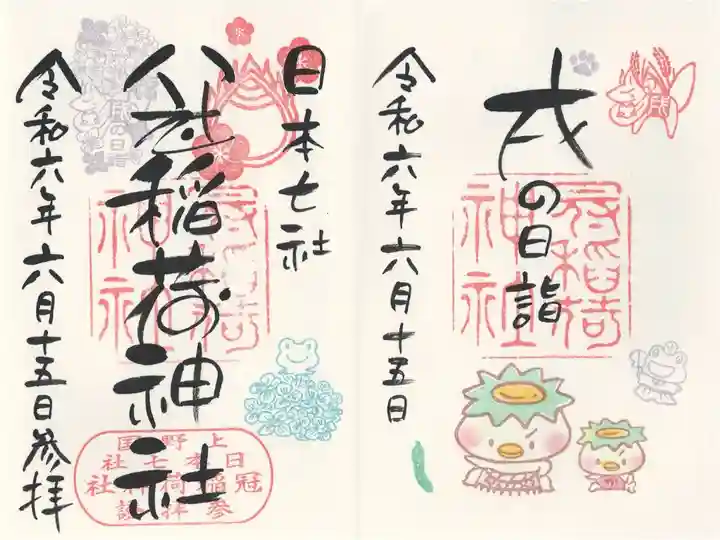 戌の日詣
令和六年六月十五日
戌
冠稲荷
神社
日本七社
冠稲荷神社
令和六年六月十五日参拝
戌の日
上野国
日本七社
冠稲荷神社